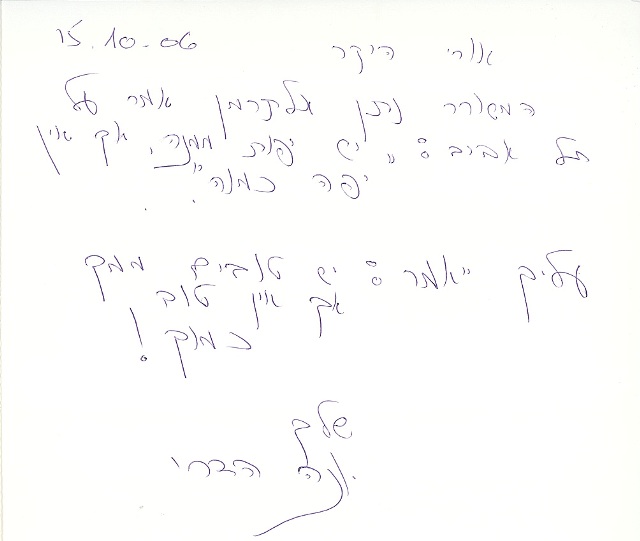 15.10-06
אורי היקר
המשורר נתן אלתרמן אמר על
תל אביב: "יש יפות ממנה, אך אין
יפה כמנה"
עליך ייאמר: יש טובים ממך
אך אין טוב
כמוך!
שלך
יונה